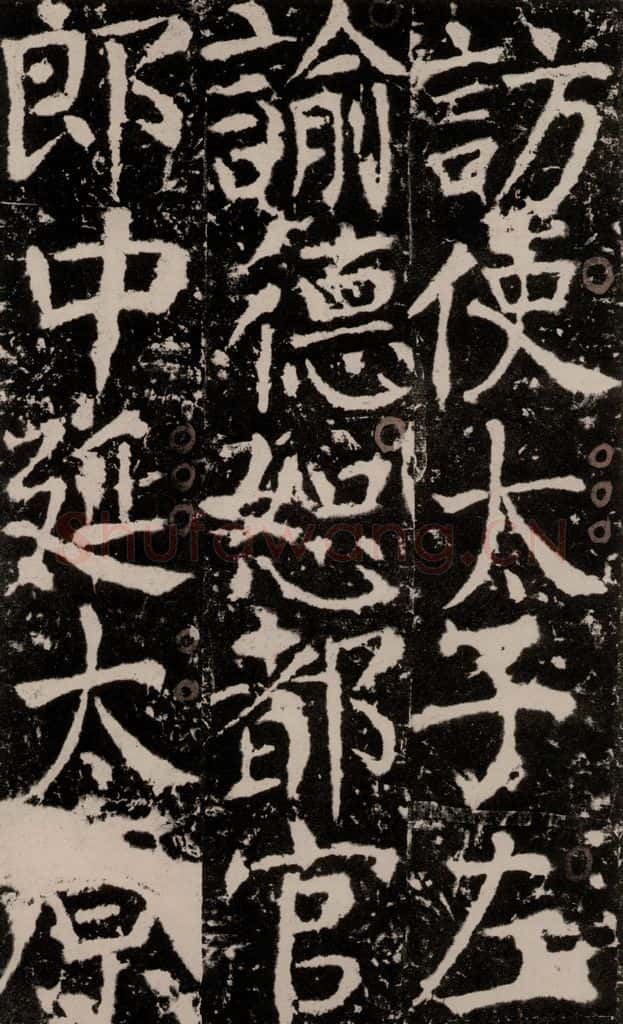 訪使太子左
諭德恕都官
郎中延太原
Shufawang.CN